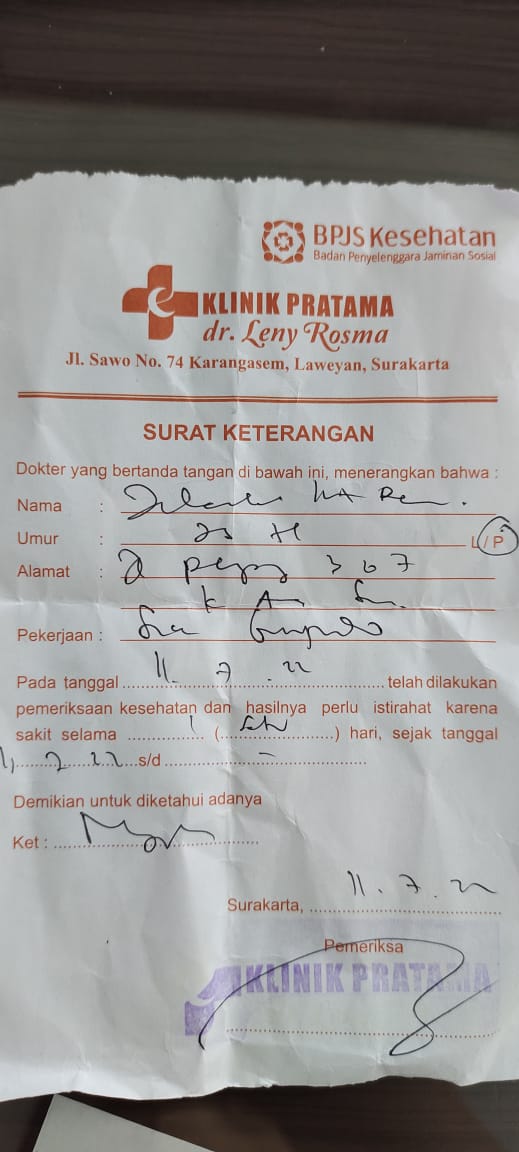 BPJS Kesehatan
Badan Penyelenggara Jaminan Sosial
KLINIK PRATAMA
dr. Leny Rosma
Jl. Sawo No. 74 Karangasem, Laweyan, Surakarta
SURAT KETERANGAN
Dokter yang bertanda tangan di bawah ini, menerangkan bahwa :
Nama :
Umur : L/P
Alamat : 367
Pekerjaan :
Pada tanggal 11. 7 . 22 telah dilakukan
pemeriksaan kesehatan dan hasilnya perlu istirahat karena
sakit selama 1 (..................) hari, sejak tanggal
11. 7. 22 s/d -
Demikian untuk diketahui adanya
Ket :
Surakarta, 11. 7. 22
Pemeriksa
KLINIK PRATAMA